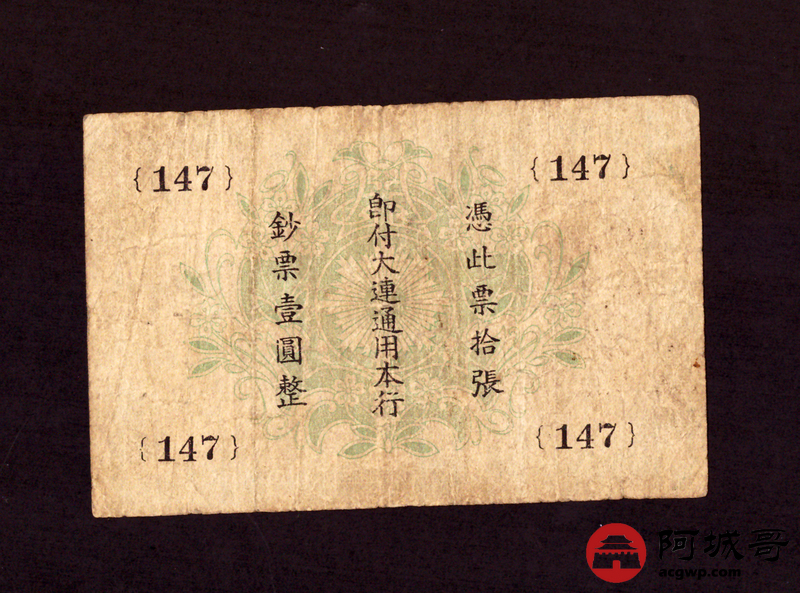 {147} {147}
憑此票拾張
即付大連通用本行
鈔票壹圓整
{147} {147}
阿城哥
acgwp.com